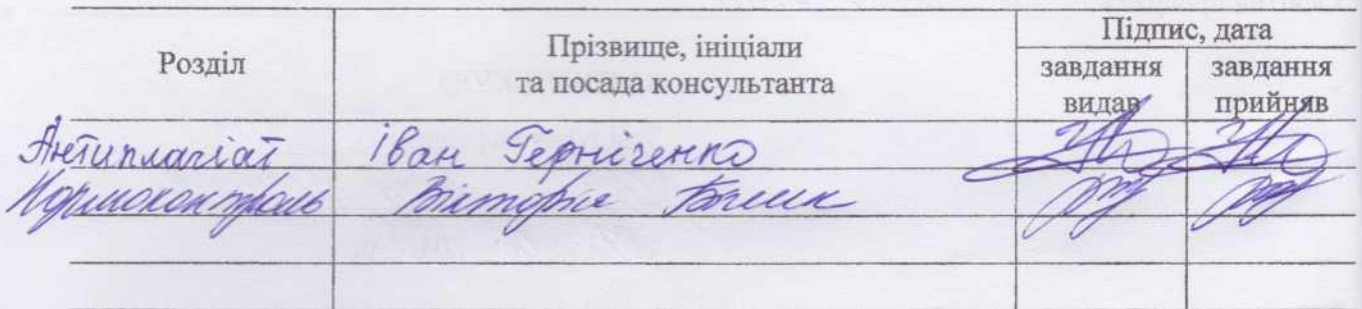 Розділ Прізвище, ініціали та посада консультанта Підпис, дата
завдання видав завдання прийняв
Антиплагіат Іван Терніченко
Нормоконтроль Вікторія